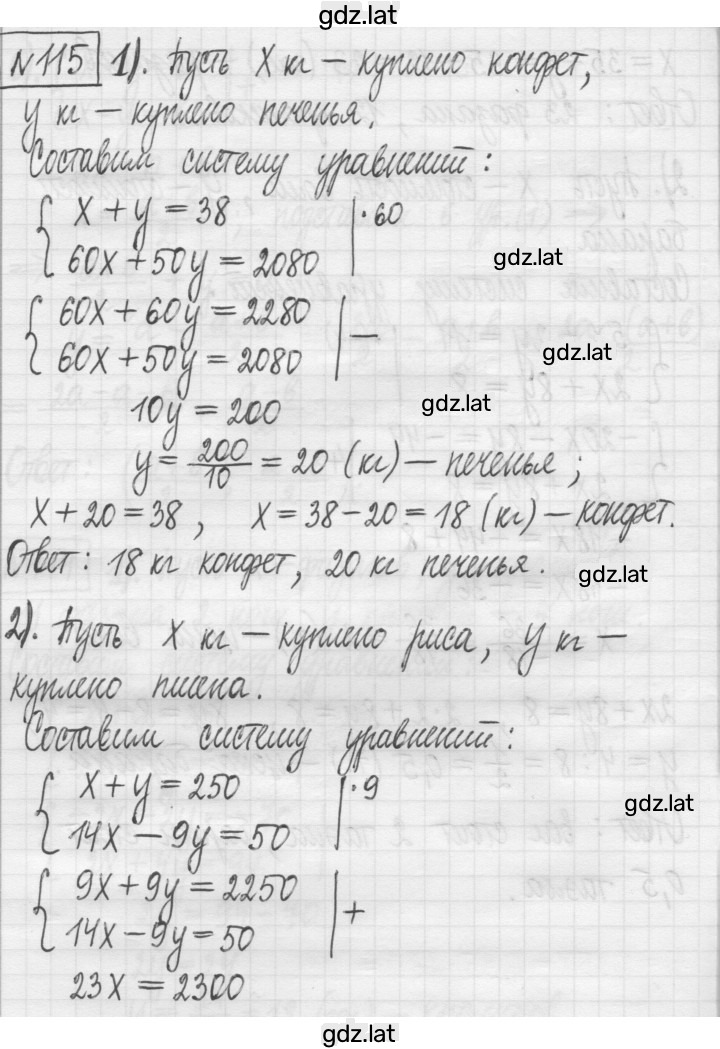 gdz.lat
№115 1). Пусть x кг – куплено конфет,
y кг – куплено печенья.
Составим систему уравнений:
x + y = 38 | ·60
60x + 50y = 2080
gdz.lat
60x + 60y = 2280
60x + 50y = 2080 | –
gdz.lat
10y = 200
gdz.lat
y = 200/10 = 20 (кг) – печенья;
x + 20 = 38, x = 38 – 20 = 18 (кг) – конфет.
Ответ: 18 кг конфет, 20 кг печенья.
gdz.lat
2). Пусть x кг – куплено риса, y кг –
куплено пшена.
Составим систему уравнений:
x + y = 250 | ·9
gdz.lat
14x – 9y = 50
9x + 9y = 2250
14x – 9y = 50 | +
23x = 2300
gdz.lat